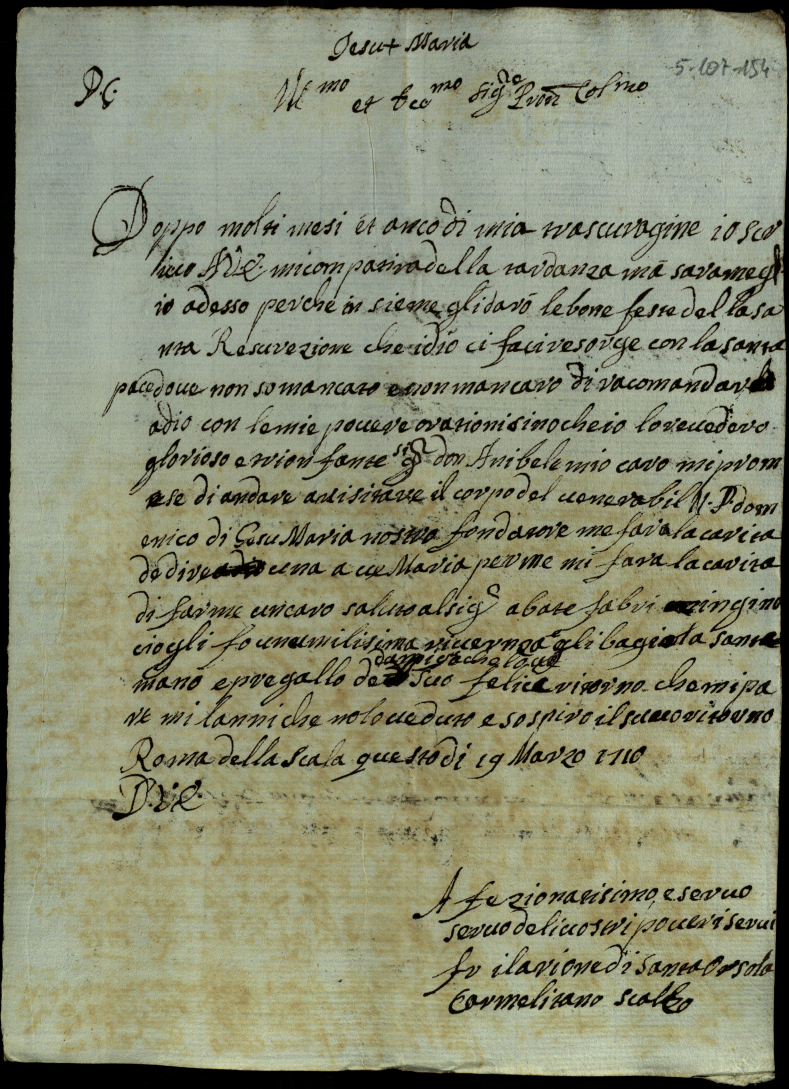 Jesu + Maria
5-107-154
P. C.
Ill^mo et Ecc^mo Sig^re Pron Col^mo
Doppo molti mesi et anco di mia trascuragine io scr
iuo A V E. mi compatira della tardanza mā sara megl
io adesso perche in sieme gli darō le bone feste del la sa
nta Resurezione che idio ci faci resorge con la santa
pace doue non so mancato e non mancaro di racomandarla
adio con le mie pouere orationi sino che io lo reuedero
glorioso e trionfante sig^r don Anibele mio caro mi prom
ese di andare a uisitare il corpo del uenerabil N. P. dom
enico di Gesu Maria nostro fondatore me fara la carita
de dire una a ue Maria per me mi fara la carita
di farme un caro saluto al sig^r abate fabri ingino
ciogli fo una umilisima riuernza e gli bagio la santa
mano e pregallo del suo felice ritorno che mi pa
re mi lanni che no lo ueduto e sospiro il suo ritorno
Roma della Scala questo di 19 Marzo 1710
D. V. E
Afezionatisimo e seruo
seruo deli uostri poueri serui
fr ilarione di Santa Orsola
Carmelitano scalzo